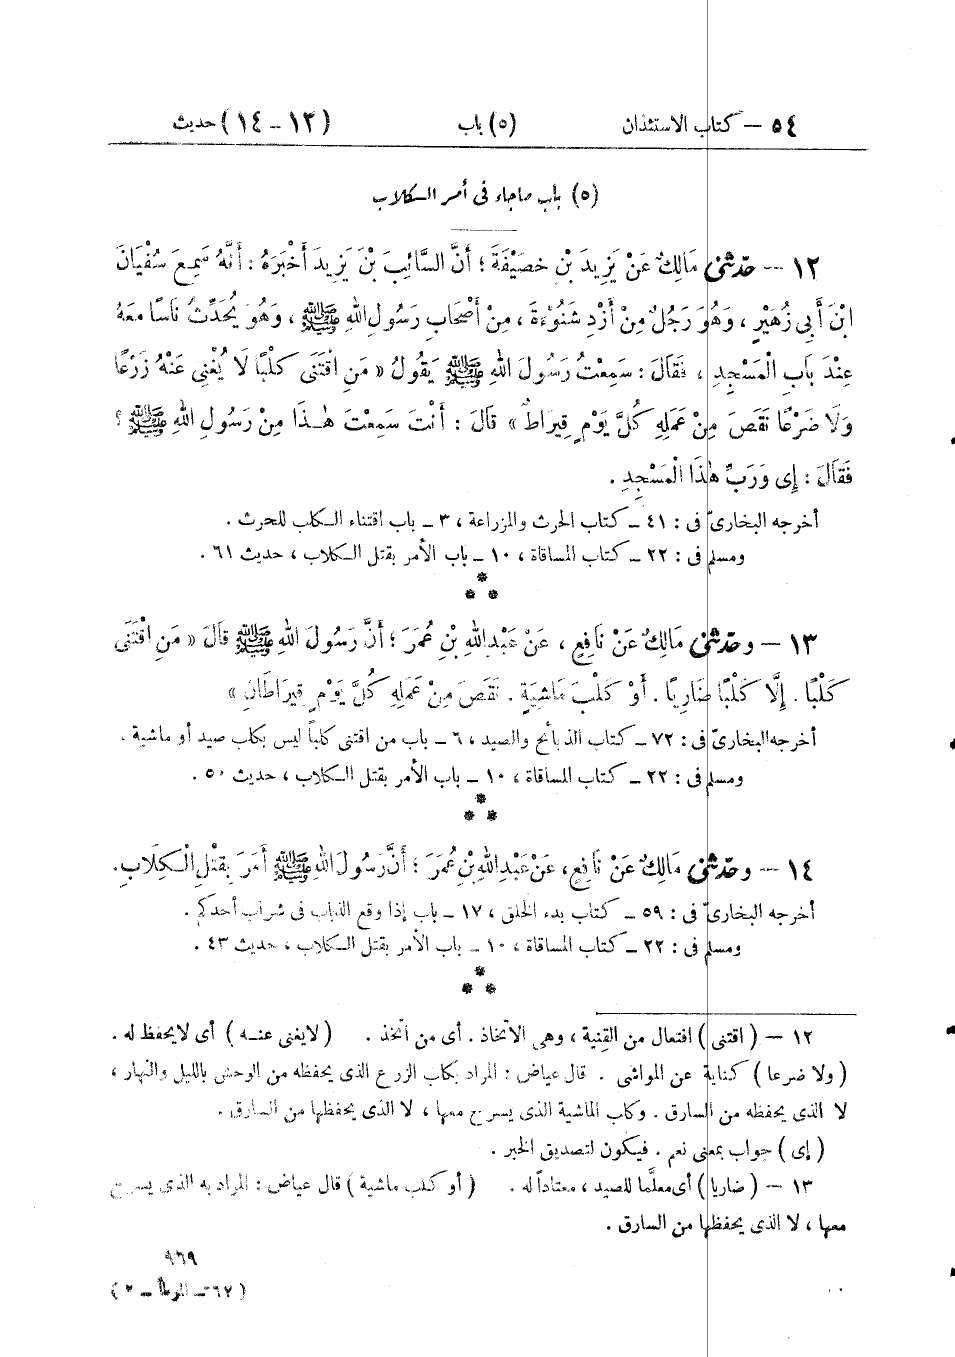 ٥٤ – كتاب الاستئذان (٥) باب (١٢ – ١٤) حديث
(٥) باب ماجاء فى أمر الكلاب
١٢ – حدّثنى مَالِكٌ عَنْ يَزِيدَ بْنِ خصَيْفَةَ ؛ أَنَّ السَّائِبَ بْنَ يَزِيدَ أَخْبَرَهُ : أَنَّهُ سَمِعَ سُفْيَانَ
ابْنَ أَبِي زُهَيْرٍ ، وَهُوَ رَجُلٌ مِنْ أَزْدِ شَنُوءَةَ ، مِنْ أَصْحَابِ رَسُولِ اللهِ ﷺ ، وَهُوَ يُحَدِّثُ نَاسًا معَهُ
عِنْدَ بَابِ الْمَسْجِدِ ، فَقَالَ : سَمِعْتُ رَسُولَ اللهِ ﷺ يَقُولُ « مَنِ اقْتَنَى كَلْبًا لَا يُغْنِى عَنْهُ زَرْعًا
وَلَا ضَرْعًا نَقَصَ مِنْ عَمَلِهِ كُلَّ يَوْمٍ قِيرَاطٌ » قَالَ : أَنْتَ سَمِعْتَ هٰذَا مِنْ رَسُولِ اللهِ ﷺ ؟
فَقَالَ : إِى وَرَبِّ هٰذَا الْمَسْجِدِ .
أخرجه البخارىّ فى : ٤١ – كتاب الحرث والمزراعة ، ٣ – باب اقتناء الكلب للحرث .
ومسلم فى : ٢٢ – كتاب المساقاة ، ١٠ – باب الأمر بقتل الكلاب ، حديث ٦١ .
١٣ – وحدّثنى مَالِكٌ عَنْ نَافِعٍ ، عَنْ عَبْدِ اللهِ بْنِ عُمَرَ ؛ أَنَّ رَسُولَ اللهِ ﷺ قَالَ « مَنِ اقْتَنَى
كَلْبًا . إِلَّا كَلْبًا ضَارِيًا . أَوْ كَلْبَ مَاشِيَةٍ . نَقَصَ مِنْ عَمَلِهِ كُلَّ يَوْمٍ قِيرَاطَانِ »
أخرجه البخارىّ فى : ٧٢ – كتاب الذبائح والصيد ، ٦ – باب من اقتنى كلباً ليس بكلب صيد أو ماشية .
ومسلم فى : ٢٢ – كتاب المساقاة ، ١٠ – باب الأمر بقتل الكلاب ، حديث ٥٠ .
١٤ – وحدّثنى مَالِكٌ عَنْ نَافِعٍ ، عَنْ عَبْدِ اللهِ بْنِ عُمَرَ ؛ أَنَّ رَسُولَ اللهِ ﷺ أَمَرَ بِقَتْلِ الْكِلَابِ .
أخرجه البخارىّ فى : ٥٩ – كتاب بدء الخلق ، ١٧ – باب إذا وقع الذباب فى شراب أحدكم .
ومسلم فى : ٢٢ – كتاب المساقاة ، ١٠ – باب الأمر بقتل الكلاب ، حديث ٤٣ .
١٢ – ( اقتنى ) افتعال من القِنية ، وهى الاتخاذ . أى من اتخذ . ( لايغنى عنه ) أى لا يحفظ له .
( ولا ضرعا ) كناية عن المواشى . قال عياض : المراد بكلب الزرع الذى يحفظه من الوحش بالليل والنهار ،
لا الذى يحفظه من السارق . وكلب الماشية الذى يسرح معها ، لا الذى يحفظها من السارق .
( إى ) جواب بمعنى نعم . فيكون لتصديق الخبر .
١٣ – ( ضاريا ) أى معلّما للصيد ، معتاداً له . ( أو كلب ماشية ) قال عياض : المراد به الذى يسرح
معها ، لا الذى يحفظها من السارق .
٩٦٩
( ٦٧ – الموطأ – ٢ )